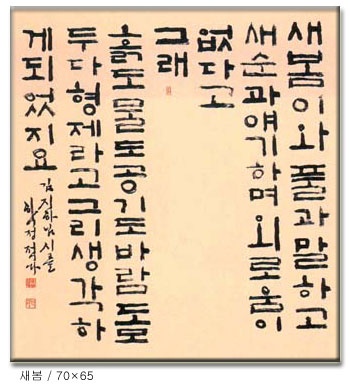 새봄이와풀과말하고
새순과얘기하며외로움이
없다고
그래
흙도물도공기도바람도모
두다형제라고그리생각하
게되었지요
김지하님시를
새봄 / 70×65